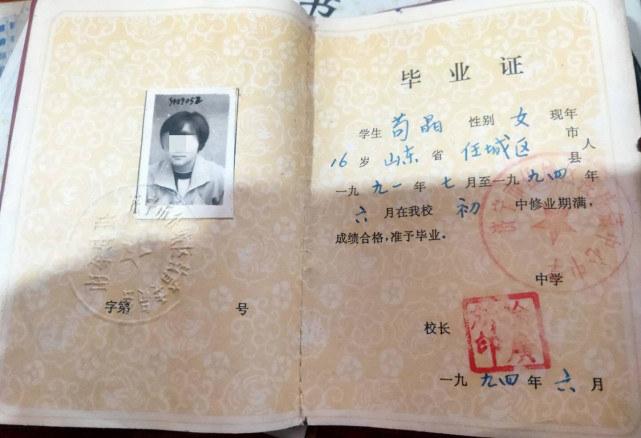 书
9409052
毕业证
学生 苟晶 性别 女 现年
16 岁 山东 省 任城区 市县 人
一九 九一 年 七 月至一九 九四 年
六 月在我校 初 中修业期满,
成绩合格,准予毕业。
中学
字第 号
校长
一九 九四 年 六 月